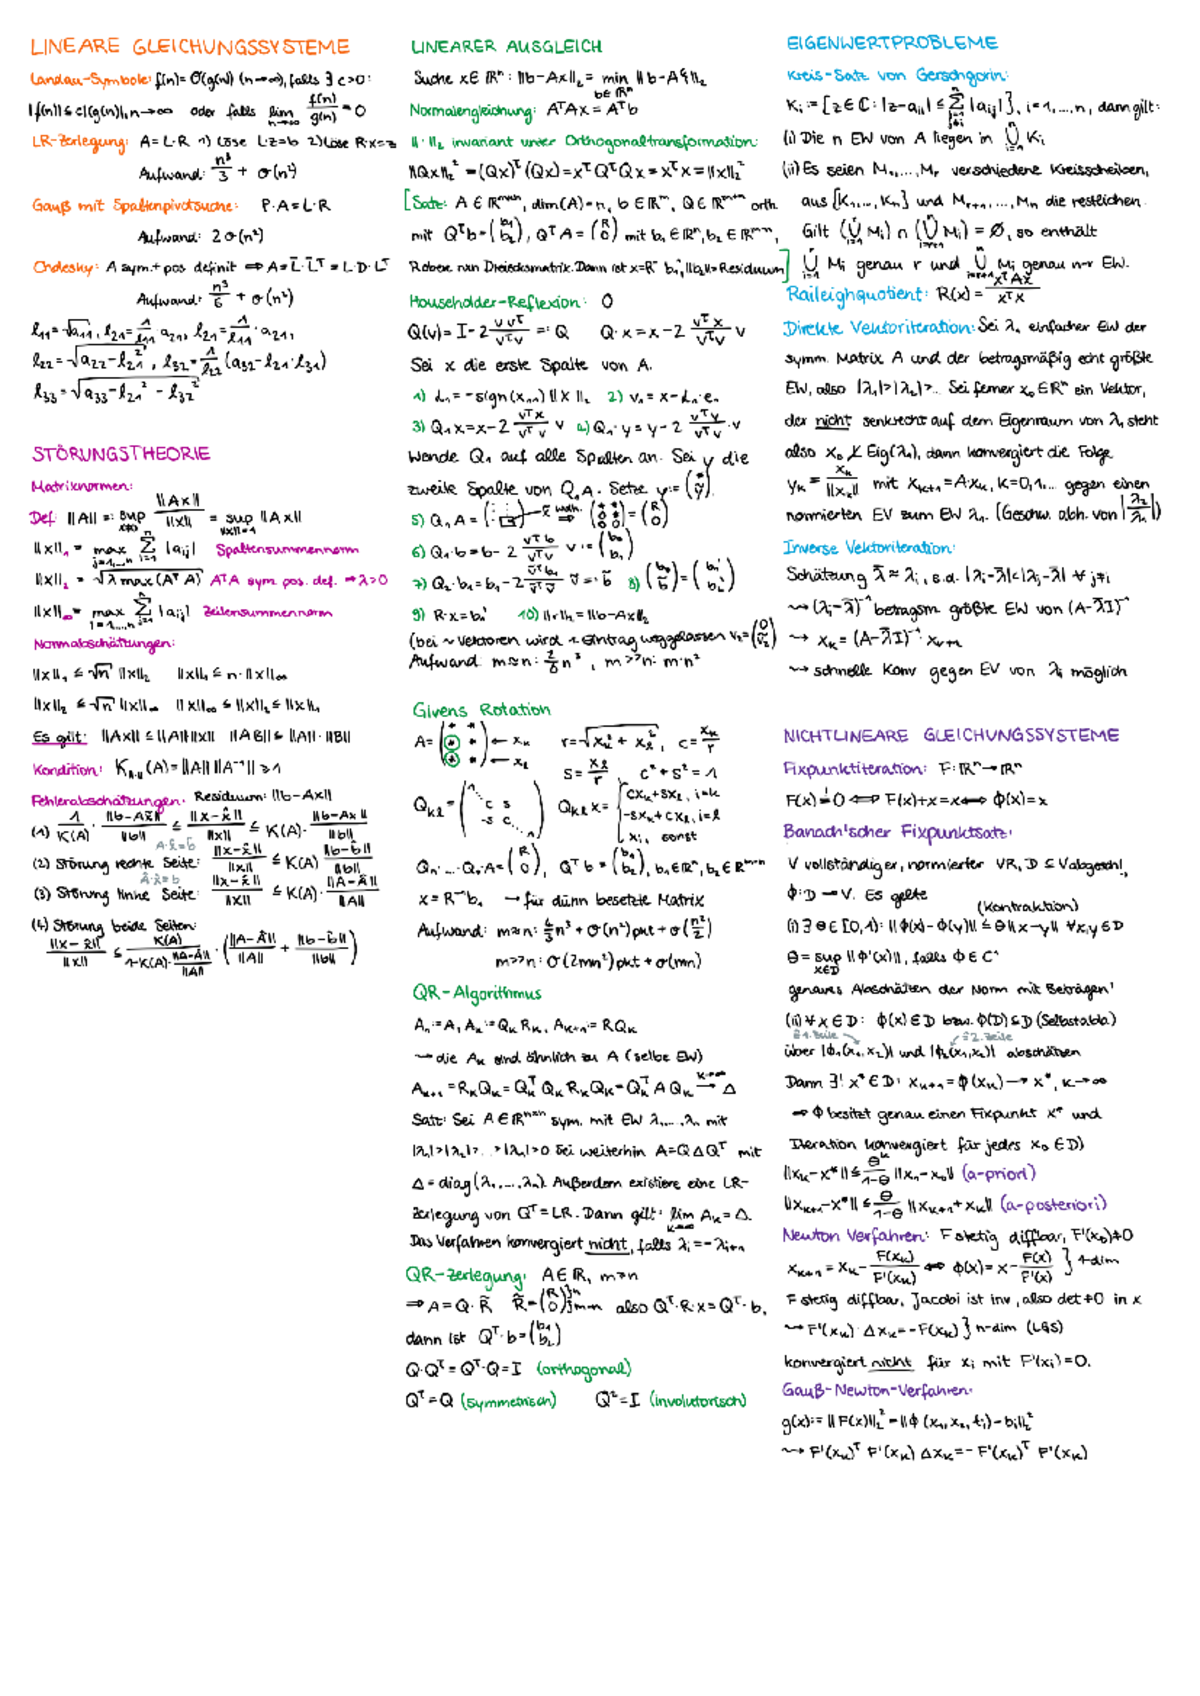 LINEARE GLEICHUNGSSYSTEME
Landau-Symbole: f(n) = O(g(n)) (n→∞), falls ∃ c>0:
|f(n)| ≤ c|g(n)|, n→∞ oder falls lim_{n→∞} f(n)/g(n) = 0
LR-Zerlegung: A = L·R 1) Löse L·z=b 2) Löse R·x=z
Aufwand: n³/3 + O(n²)
Gauß mit Spaltenpivotsuche: P·A = L·R
Aufwand: 2O(n²)
Cholesky: A sym.+pos definit ⇒ A = L̄·L̄ᵀ = L·D·Lᵀ
Aufwand: n³/6 + O(n²)
l₁₁ = √a₁₁, l₂₁ = 1/l₁₁ · a₂₁, l₂₁ = 1/l₁₁ · a₂₁,
l₂₂ = √(a₂₂ - l₂₁²), l₃₂ = 1/l₂₂ (a₃₂ - l₂₁·l₃₁)
l₃₃ = √(a₃₃ - l₂₁² - l₃₂²)
STÖRUNGSTHEORIE
Matrixnormen:
Def: ||A|| =: sup_{x≠0} ||Ax||/||x|| = sup_{||x||=1} ||Ax||
||x||₁ = max_{j=1,...,n} Σ_{i=1}^n |a_ij| Spaltensummennorm
||x||₂ = √λmax(AᵀA) AᵀA sym. pos. def. ⇒ λ>0
||x||∞ = max_{i=1,...,n} Σ_{j=1}^n |a_ij| Zeilensummennorm
Normabschätzungen:
||x||₁ ≤ √n ||x||₂ ||x||₁ ≤ n·||x||∞
||x||₂ ≤ √n ||x||∞ ||x||∞ ≤ ||x||₂ ≤ ||x||₁
Es gilt: ||Ax|| ≤ ||A|| ||x|| ||AB|| ≤ ||A||·||B||
Kondition: K_{||·||}(A) = ||A|| ||A⁻¹|| ≥ 1
Fehlerabschätzungen: Residuum: ||b-Ax||
(1) 1/K(A) · ||b-Ax̃||/||b|| ≤ ||x-x̂||/||x|| ≤ K(A) · ||b-Ax||/||b||
A·x̂=b̂
(2) Störung rechte Seite: ||x-x̂||/||x|| ≤ K(A) ||b-b̂||/||b||
Â·x̂=b
(3) Störung linke Seite: ||x-x̂||/||x|| ≤ K(A)·||A-Â||/||A||
(4) Störung beide Seiten:
||x-x̂||/||x|| ≤ K(A)/(1-K(A)·||A-Â||/||A||) · (||A-Â||/||A|| + ||b-b̂||/||b||)
LINEARER AUSGLEICH
Suche x∈ℝⁿ: ||b-Ax||₂ = min_{b∈ℝⁿ} ||b-Aξ||₂
Normalengleichung: AᵀAx = Aᵀb
||·||₂ invariant unter Orthogonaltransformation:
||Qx||₂² = (Qx)ᵀ(Qx) = xᵀQᵀQx = xᵀx = ||x||₂²
[Satz: A∈ℝ^{m×n}, dim(A)=n, b∈ℝᵐ, Q∈ℝ^{m×m} orth.
mit Qᵀb = (b₁ b₂), QᵀA = (R 0) mit b₁∈ℝⁿ, b₂∈ℝ^{m-n},
R obere nxn Dreiecksmatrix. Dann ist x=R⁻¹b₁, ||b₂||₂ = Residuum]
Householder-Reflexion: O
Q(v) = I - 2 vvᵀ/vᵀv =: Q Q·x = x - 2 vᵀx/vᵀv v
Sei x die erste Spalte von A.
1) α₁ = -sign(x₁,₁) ||x||₂ 2) v₁ = x - α₁·e₁
3) Q₁x = x - 2 vᵀx/vᵀv v 4) Q₁·y = y - 2 vᵀy/vᵀv · v
Wende Q₁ auf alle Spalten an. Sei y die
zweite Spalte von Q₁A. Setze y := (* ỹ).
5) Q₁A = wdh. ⇒ = (R 0)
6) Q₁·b = b - 2 vᵀb/vᵀv v := (b₀ b₁)
7) Q₂·b₁ = b₁ - 2 ṽᵀb/ṽᵀṽ ṽ =: b̃ 8) (b₀ b̃) = (b₁' b₂')
9) R·x = b₁' 10) ||r||₂ = ||b-Ax||₂
(bei ~ Vektoren wird 1. Eintrag weggelassen v₂ = (0 ṽ₂))
Aufwand: m≈n: 2/3 n³, m>>n: m·n²
Givens Rotation
A = ← x_k ← x_l r = √(x_k² + x_l²), c = x_k/r
s = x_l/r, c² + s² = 1
Q_kl = (c s -s c) Q_kl x = { cx_k + sx_l, i=k
-sx_k + cx_l, i=l
x_i, sonst
Qₙ·...·Q₁·A = (R 0), Qᵀb = (b₁ b₂), b₁∈ℝⁿ, b₂∈ℝ^{m-n}
x = R⁻¹b₁ → für dünn besetzte Matrix
Aufwand: m≈n: 4/3 n³ + O(n²) pkt + O(n²/2)
m>>n: O(2mn²) pkt + O(mn)
QR-Algorithmus
A₁ := A, A_k := Q_k R_k, A_{k+1} := RQ_k
⇝ die A_k sind ähnlich zu A (selbe EW)
A_{k+1} = R_kQ_k = Q_kᵀ Q_k R_k Q_k = Q_kᵀ A Q_k →^{k→∞} Δ
Satz: Sei A∈ℝ^{n×n} sym. mit EW λ₁,...,λₙ mit
|λ₁|>|λ₂|>...>|λₙ|>0 Sei weiterhin A=QΔQᵀ mit
Δ = diag(λ₁,...,λₙ). Außerdem existiere eine LR-
Zerlegung von Qᵀ=LR. Dann gilt: lim_{k→∞} A_k = Δ.
Das Verfahren konvergiert nicht, falls λᵢ = -λᵢ₊₁
QR-Zerlegung: A∈ℝ, m>n
⇒ A = Q·R̃ R̃ = (R 0) }n }m-n also Qᵀ·R·x = Qᵀ·b,
dann ist Qᵀ·b = (b₁ b₂)
Q·Qᵀ = Qᵀ·Q = I (orthogonal)
Qᵀ = Q (symmetrisch) Q² = I (involutorisch)
EIGENWERTPROBLEME
Kreis-Satz von Gerschgorin:
Kᵢ := {z∈ℂ: |z-aᵢᵢ| ≤ Σ_{j=1, j≠i}^n |aᵢⱼ|}, i=1,...,n, dann gilt:
(i) Die n EW von A liegen in ⋃_{i=1}^n Kᵢ
(ii) Es seien M₁,...,Mᵣ verschiedene Kreisscheiben,
aus {K₁,...,Kₙ} und Mᵣ₊₁,...,Mₙ die restlichen.
Gilt (⋃_{i=1}^r Mᵢ) ∩ (⋃_{i=r+1}^n Mᵢ) = ∅, so enthält
⋃_{i=1}^r Mᵢ genau r und ⋃_{i=r+1}^n Mᵢ genau n-r EW.
Raileighquotient: R(x) = xᵀAx/xᵀx
Direkte Vektoriteration: Sei λ₁ einfacher EW der
symm. Matrix A und der betragsmäßig echt größte
EW, also |λ₁|>|λ₂|>... Sei ferner x₀∈ℝⁿ ein Vektor,
der nicht senkrecht auf dem Eigenraum von λ₁ steht
also x₀ ⊥̸ Eig(λ₁), dann konvergiert die Folge
y_k = x_k/||x_k|| mit x_{k+1} = A·x_k, k=0,1,... gegen einen
normierten EV zum EW λ₁. (Geschw. abh. von |λ₂/λ₁|)
Inverse Vektoriteration:
Schätzung λ̄ ≈ λᵢ, s.d. |λᵢ-λ̄|<|λⱼ-λ̄| ∀ j≠i
⇝ (λᵢ-λ̄)⁻¹ betragsm. größte EW von (A-λ̄I)⁻¹
⇝ x_k = (A-λ̄I)⁻¹·x_{k+1}
⇝ schnelle Konv gegen EV von λᵢ möglich
NICHTLINEARE GLEICHUNGSSYSTEME
Fixpunktiteration: F: ℝⁿ→ℝⁿ
F(x) =! 0 ⇔ F(x)+x=x ⇔ ϕ(x)=x
Banach'scher Fixpunktsatz:
V vollständiger, normierter VR, D ⊆ V abgeschl.,
ϕ: D→V. Es gelte
(Kontraktion)
(i) ∃ Θ∈[0,1): ||ϕ(x)-ϕ(y)|| ≤ Θ||x-y|| ∀x,y∈D
Θ = sup_{x∈D} ||ϕ'(x)||, falls ϕ∈C¹
genaues Abschätzen der Norm mit Beträgen!
(ii) ∀x∈D: ϕ(x)∈D bzw. ϕ(D)⊆D (Selbstabb.)
≙1.Zeile ≙2.Zeile
über |ϕ₁(x₁,x₂)| und |ϕ₂(x₁,x₂)| abschätzen
Dann ∃! x*∈D: x_{k+1} = ϕ(x_k) → x*, k→∞
⇒ ϕ besitzt genau einen Fixpunkt x* und
Iteration konvergiert für jedes x₀∈D)
||x_k-x*|| ≤ Θᵏ/(1-Θ) ||x₁-x₀|| (a-priori)
||x_{k+1}-x*|| ≤ Θ/(1-Θ) ||x_{k+1}+x_k|| (a-posteriori)
Newton Verfahren: F stetig diffbar, F'(x₀)≠0
x_{k+1} = x_k - F(x_k)/F'(x_k) ⇔ ϕ(x) = x - F(x)/F'(x) } 1-dim
F stetig diffbar, Jacobi ist inv, also det≠0 in x
⇝ F'(x_k)·Δx_k = -F(x_k) } n-dim (LGS)
konvergiert nicht für xᵢ mit F'(xᵢ)=0.
Gauß-Newton-Verfahren:
g(x) := ||F(x)||₂² = ||ϕ(x₁,x₂,tᵢ)-bᵢ||₂²
⇝ F'(x_k)ᵀ F'(x_k) Δx_k = -F'(x_k)ᵀ F'(x_k)